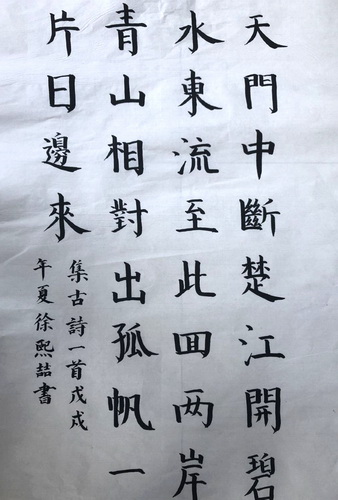 天門中斷楚江開碧
水東流至此回两岸
青山相對出孤帆一
片日邊來
集古詩一首戊戌
午夏徐熙喆書